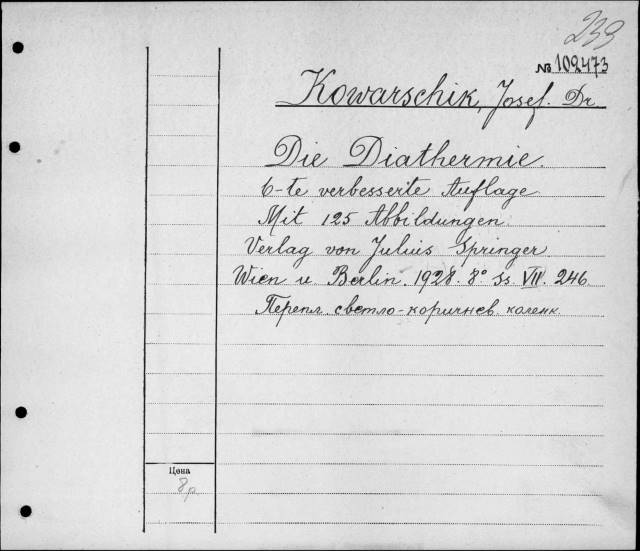 239
№ 102473
Kowarschik, Josef. Dr.
Die Diathermie.
6-te verbesserte Auflage
Mit 125 Abbildungen.
Verlag von Julius Springer
Wien u. Berlin. 1928. 8° Ss. VII. 246.
Перепл. светло-коричнев. коленк.
Цена
8 р.